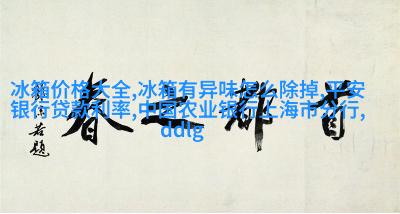 冰箱价格大全,冰箱有异味怎么除掉,平安
银行贷款利率,中国农业银行上海市分行,
ddlg
首都之春